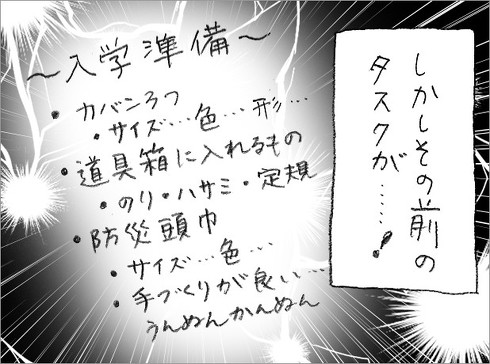 しかしその前の
タスクが……!
～入学準備～
・カバン3つ
・サイズ…色…形…
・道具箱に入れるもの
・のり・ハサミ・定規
・防災頭巾
・サイズ…色…
・手づくりが良い…
うんぬんかんぬん